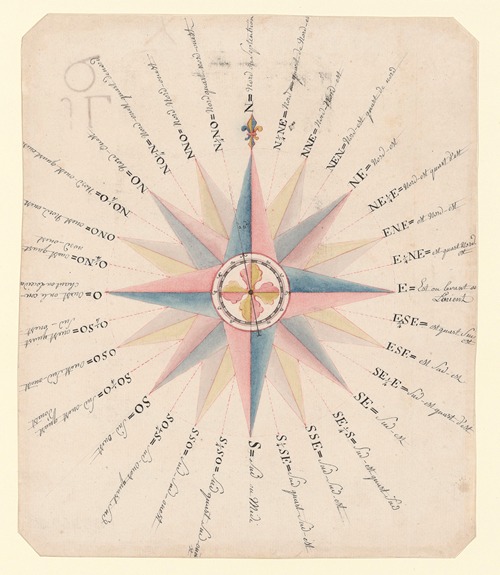 N = Nord ou Septentrion
N¼NE = Nord quart de Nord est
NNE = Nord Nord est
NEN = Nord-est quart de nord
NE = Nord-est
NE¼E = Nord est quart d'est
ENE = est Nord-est
E¼NE = est-quart Nord
est
E = Est ou Levant ou
L'orient
E¼SE = est quart Sud
est
ESE = est Sud-est
SE¼E = Sud-est quart d'est
SE = Sud-est
SE¼S = Sud est quart Sud
SSE = Sud Sud-est
S¼SE = Sud quart Sud-est
S = Sud ou Midi
S¼SO = Sud quart Sud
SSO = Sud Sud-ouest
SO¼S = Sud ouest quart Sud
SO = Sud ouest
SO¼O = Sud ouest quart
Douest
OSO = Ouest Sud-ouest
O¼SO = ouest quart
Sud-ouest
O = Ouest ou
O¼NO = ouest quart
nord-ouest
ONO = ouest Nord ouest
NO¼O = Nord ouest quart
NO = Nord ouest
NO¼N = Nord ouest quart Nord
NNO = Nord Nord ouest
N¼NO = Nord quart Nord-ouest